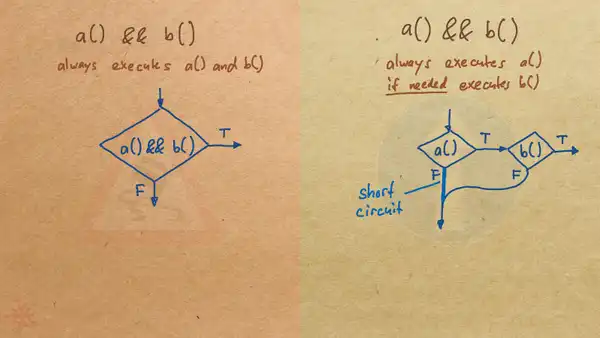 a() && b()
always executes a() and b()
T
a() && b()
F
a() && b()
always executes a()
if needed executes b()
a()
T
b()
T
F
F
short
circuit